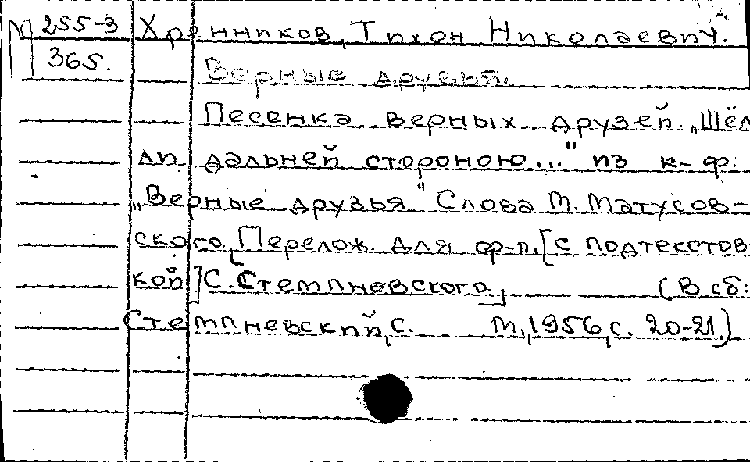 М 255-3 Хренников, Тихон Николаевич.
365. Верные друзья.
Песенка верных друзей „Шёл
ли дальней стороною..." из к-ф.
„Верные друзья" Слова М. Матусов-
ского. Перелож. для ф-п. [с подтекстов
кой] С. Стемпневского, (В сб:
Стемпневский, С. М., 1956, с. 20-21.)